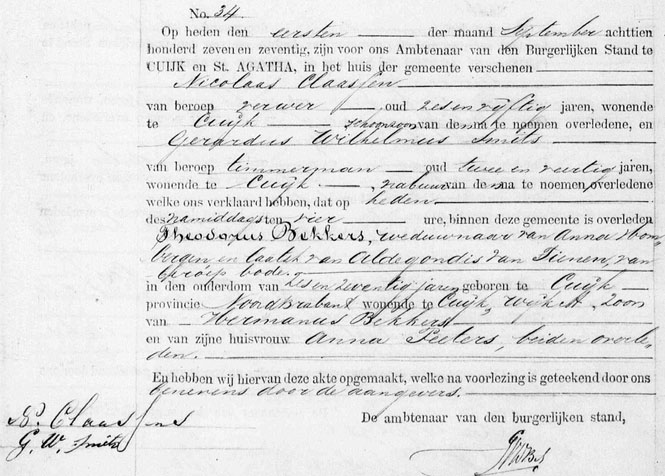 No. 34.
Op heden den eersten der maand September achttien
honderd zeven en zeventig, zijn voor ons Ambtenaar van den Burgerlijken Stand te
CUIJK en St. AGATHA, in het huis der gemeente verschenen
Nicolaas Claassen
van beroep verwer, oud zes en vijftig jaren, wonende
te Cuijk schoonzoon van de na te noemen overledene, en
Gerardus Wilhelmus Smits
van beroep timmerman oud twee en veertig jaren,
wonende te Cuijk, nabuur van de na te noemen overledene
welke ons verklaard hebben, dat op heden
des namiddags ten vier ure, binnen deze gemeente is overleden
Theodorus Bekkers, weduwnaar van Anna
bergen en laatst van Aldegondis van Tienen, van
beroep bode.
in den ouderdom van zes en zeventig jaren geboren te Cuijk
provincie Noordbrabant wonende te Cuijk, wijk A, zoon
van Hermanus Bekkers
en van zijne huisvrouw Anna Peeters, beiden overle-
den.
En hebben wij hiervan deze akte opgemaakt, welke na voorlezing is geteekend door ons
benevens door de aangevers.
De ambtenaar van den burgerlijken stand,
N. Claassens
G. W. Smits